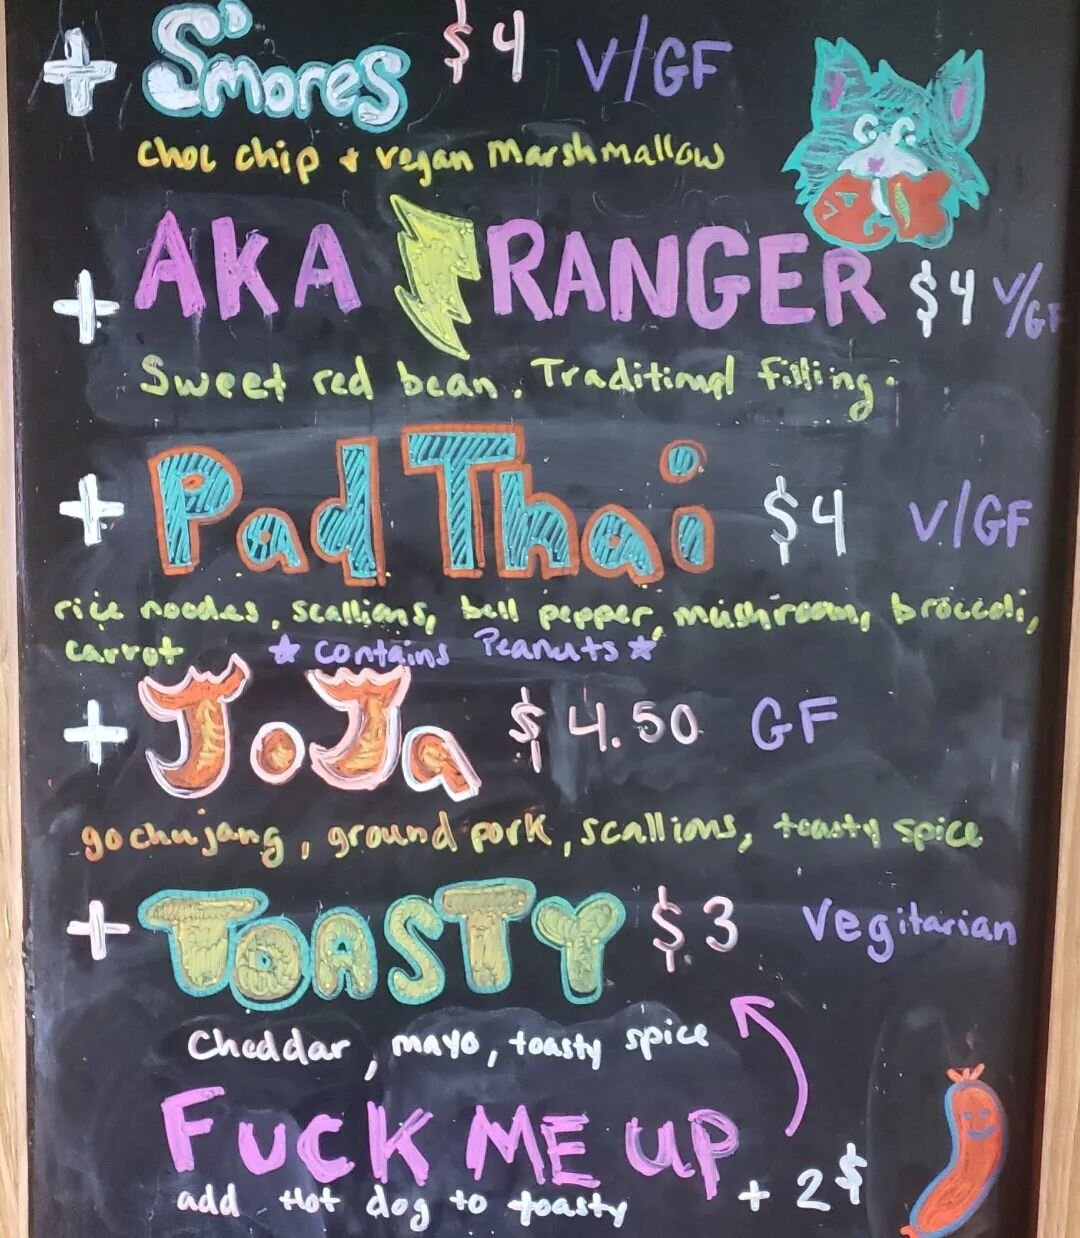 + S'mores $4 V/GF
choc chip + vegan marshmallow
+ AKA RANGER $4 V/GF
Sweet red bean. Traditional filling.
+ Pad Thai $4 V/GF
rice noodles, scallions, bell pepper, mushroom, broccoli,
carrot ★ contains Peanuts ★
+ JoJa $4.50 GF
gochujang, ground pork, scallions, toasty spice
+ TOASTY $3 Vegitarian
Cheddar, mayo, toasty spice
FUCK ME UP
add Hot dog to toasty + 2$